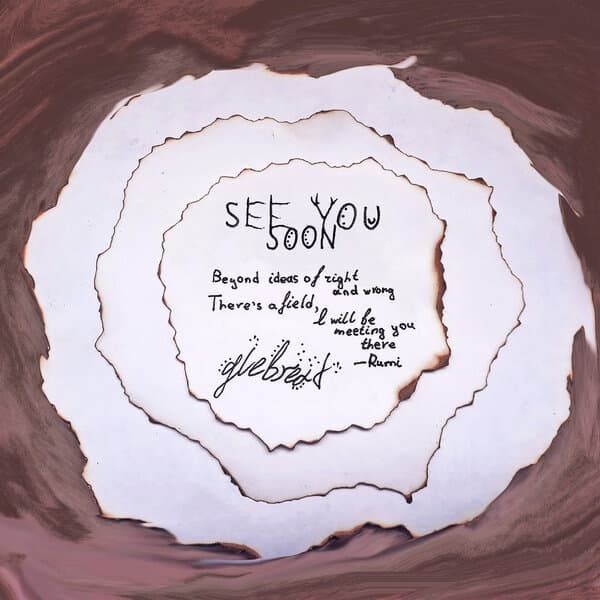 SEE YOU
SOON
Beyond ideas of right
and wrong
There's a field,
I will be
meeting you
there
—Rumi